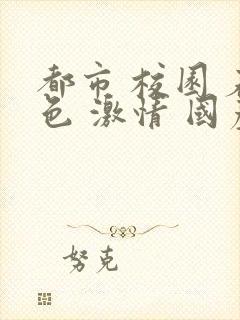 都市 校园 
色 激情 国
努克